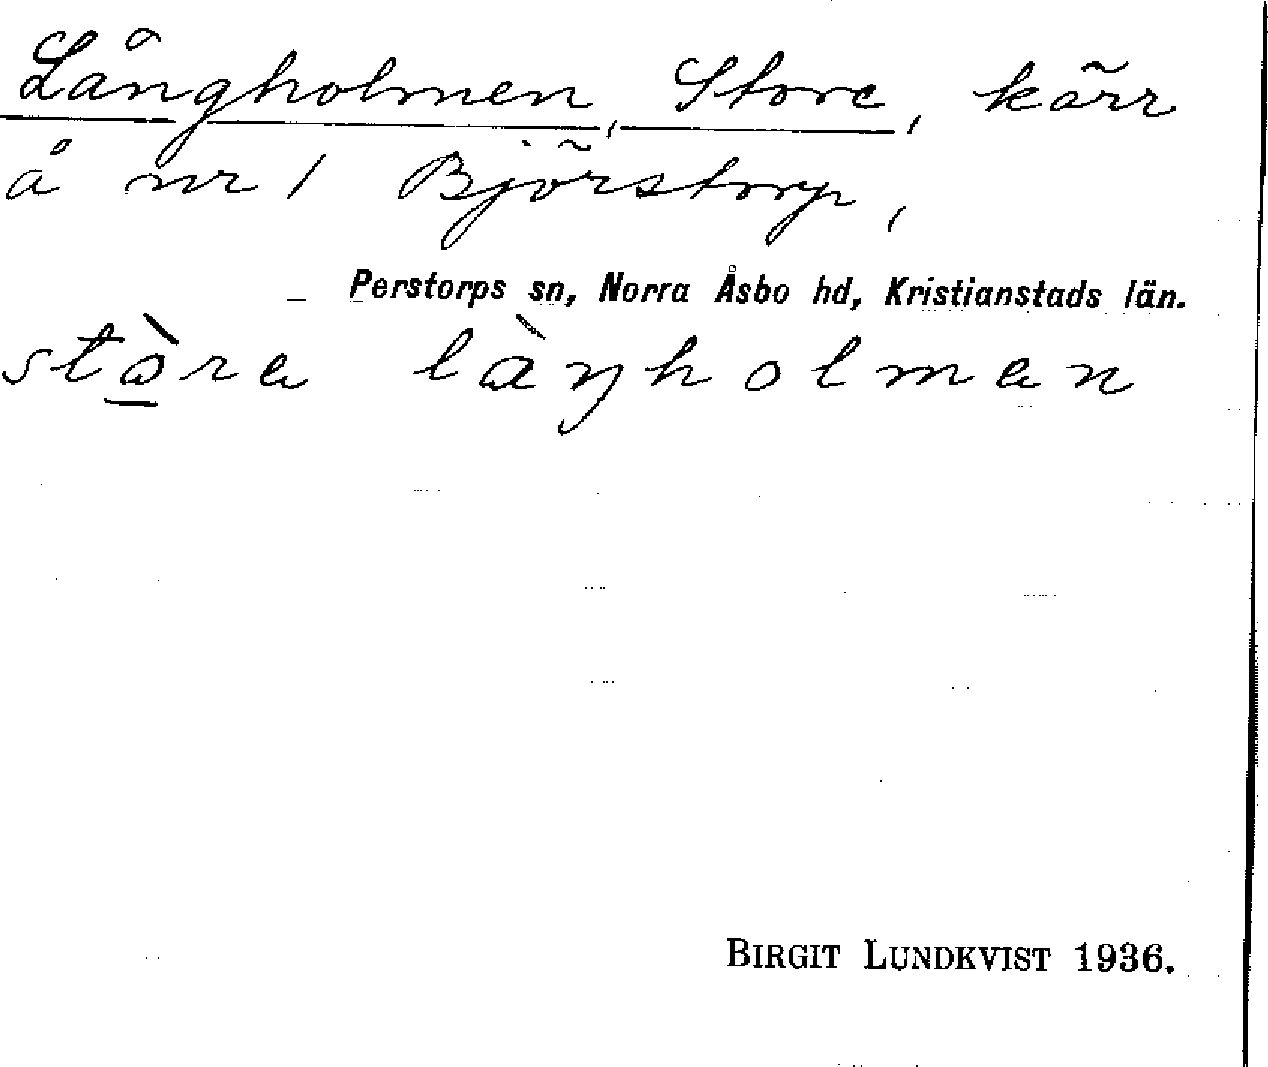 Långholmen, Store, kärr
å nr 1 Björstorp,
Perstorps sn, Norra Åsbo hd, Kristianstads län.
stò̱ra làŋholman
BIRGIT LUNDKVIST 1936.